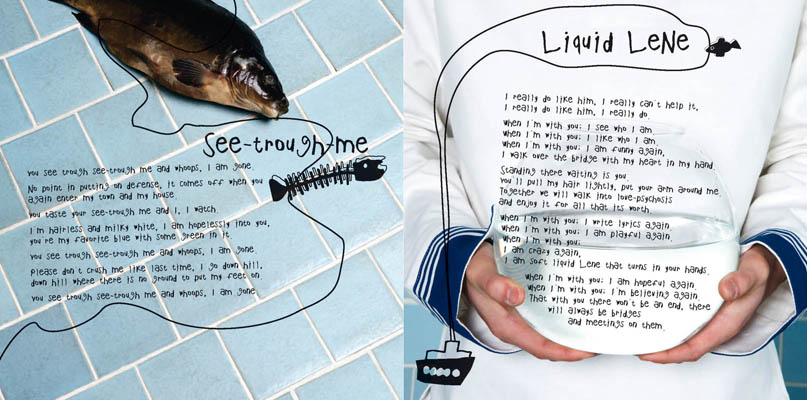 See-trough-me
you see trough see-trough me and whoops, I am gone.
No point in putting on defense, it comes off when you
again enter my town and my house.
you taste your see-trough me and I, I watch.
I'm hairless and milky white, I am hopelessly into you,
you're my favorite blue with some green in it.
you see trough see-trough me and whoops, I am gone.
Please don't crush me like last time, I go down hill,
down hill where there is no ground to put my feet on.
you see trough see-trough me and whoops, I am gone.
Liquid LeNe
I really do like him, I really can't help it,
I really do like him, I really do.
when I'm with you; I see who I am
when I'm with you; I like who I am
when I'm with you; I am funny again,
I walk over the bridge with my heart in my hand.
Standing there waiting is you.
You'll pull my hair lightly, put your arm around me.
Together we will walk into love-psychosis
and enjoy it for all that its worth.
when I'm with you; I write lyrics again.
when I'm with you; I am playful again.
when I'm with you;
I am crazy again,
I am soft liquid Lene that turns in your hands.
when I'm with you; I am hopeful again.
when I'm with you; I'm believing again.
That with you there won't be an end, there
will always be bridges
and meetings on them.